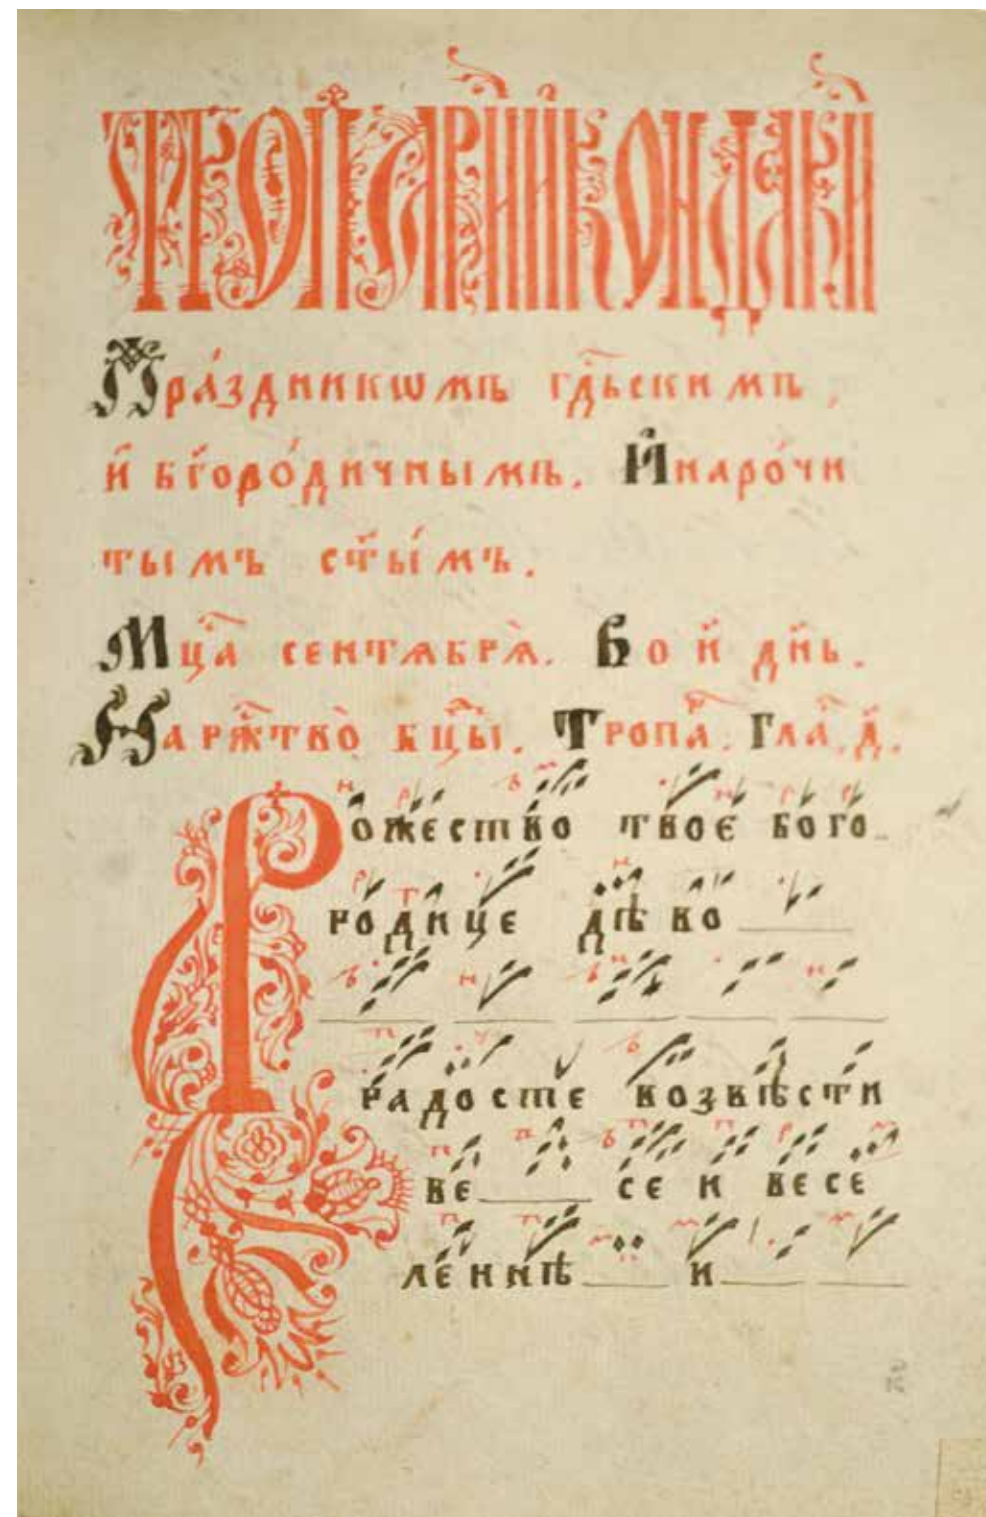 ТРОПАРИ И КОНДАКИ
Пра́здникѡмъ гд҇ьскимъ,
и҆ бг҃оро́дичнымъ. И҆ наро́чи
тымъ ст҃ы́мъ.
Мц҇а сентѧбрѧ̀. Во и҃ дн҃ь.
На рж҇тво̀ бц҇ы. Тропа҇. Гла҇. д҃.
Рожество твое бого
родице дѣво
радосте возвѣсти
ве се и весе
леннѣ и